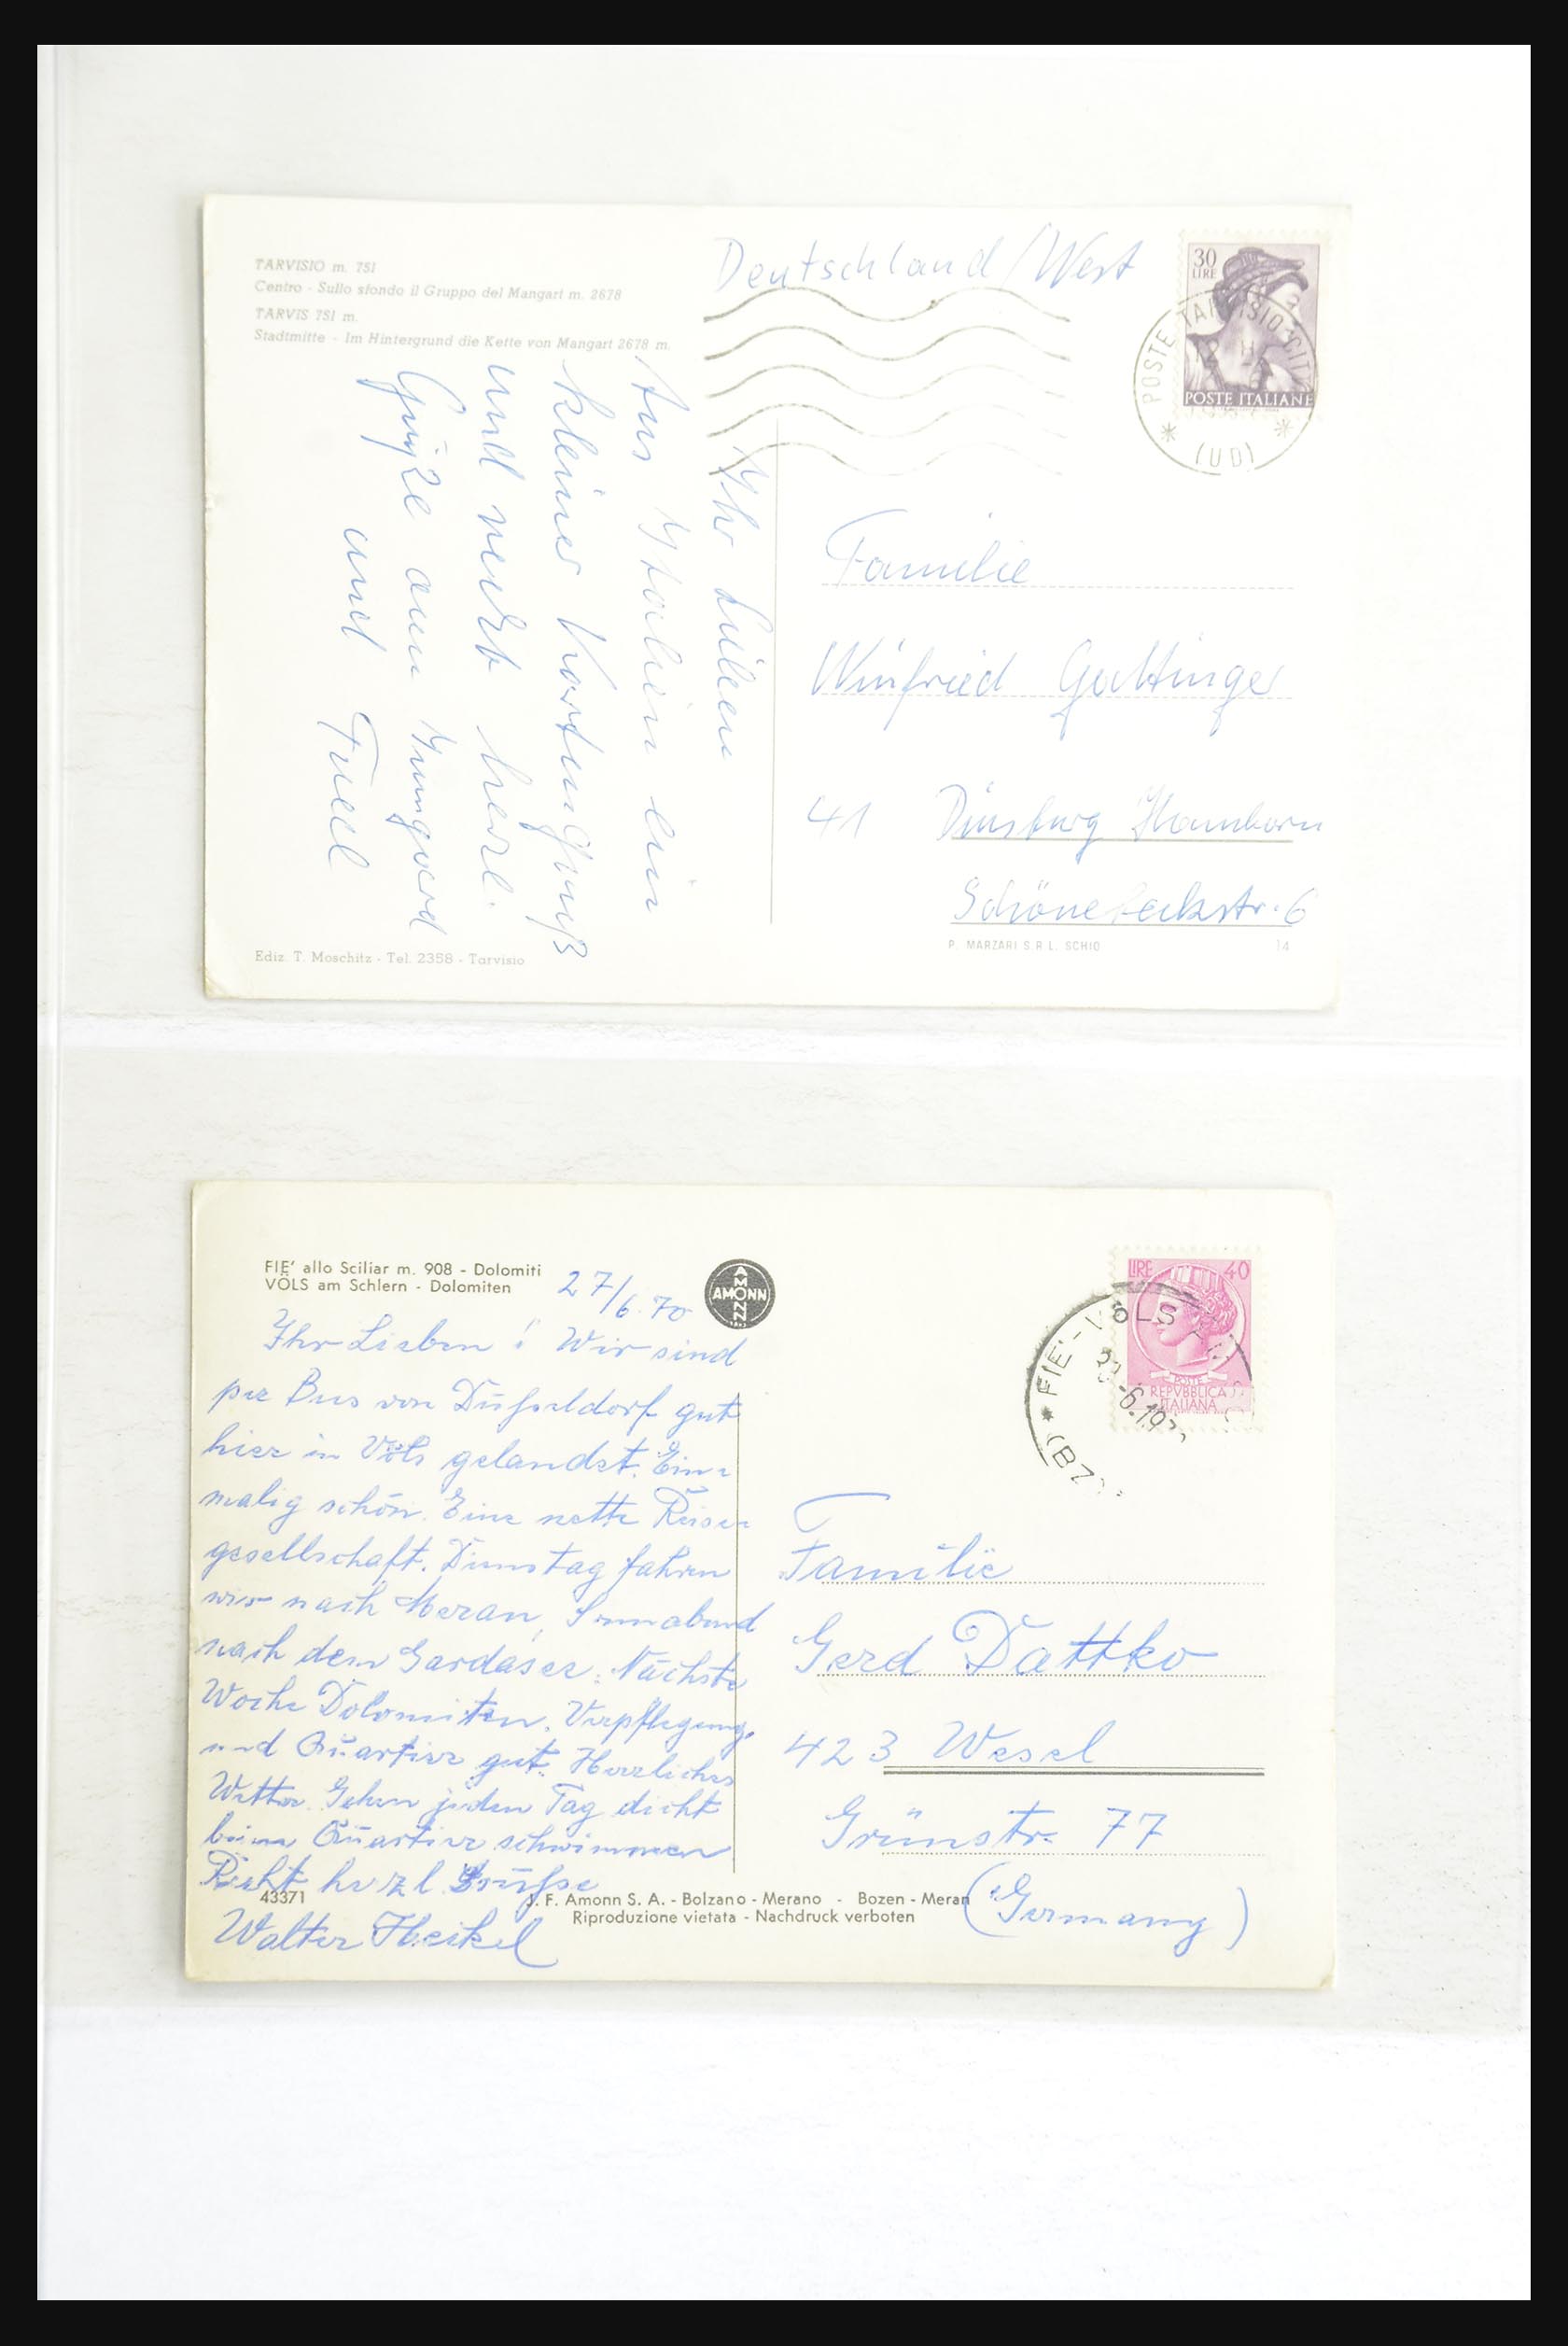 TARVISIO m. 751
Centro - Sullo sfondo il Gruppo del Mangart m. 2678
TARVIS 751 m.
Stadtmitte - Im Hintergrund die Kette von Mangart 2678 m.
Deutschland/West
30
LIRE
POSTE ITALIANE
POSTE TARVISIO CITTA
12 H
(UD)
Ihr Lieben
Aus Italien ein
kleiner Kartengruß
und nebst herzl.
Grüße aus
und
Familie
Winfried
41 Duisburg Hamborn
Schönebeckstr. 6
Ediz. T. Moschitz - Tel. 2358 - Tarvisio
P. MARZARI S.R.L. SCHIO 14
FIE' allo Sciliar m. 908 - Dolomiti
VÖLS am Schlern - Dolomiten
27/6.70
AMONN
AMONN
LIRE 40
POSTE
REPVBBLICA
ITALIANA
FIE'-VÖLS
-6.197
(BZ
Ihr Lieben! Wir sind
per Bus von Düsseldorf gut
hier in Völs gelandet. Ein-
malig schön. Eine nette Reise-
gesellschaft. Dienstag fahren
wir nach Meran, Sonnabend
nach dem Gardasee. Nächste
Woche Dolomiten. Verpflegung
und Quartier gut. Herrliches
Wetter. Gehen jeden Tag dicht
beim Quartier schwimmen
Recht herzl. Grüße
Walter Heikel
Familie
Gerd Dattko
423 Wesel
Grünstr. 77
(Germany)
43371
J. F. Amonn S. A. - Bolzano - Merano - Bozen - Meran
Riproduzione vietata - Nachdruck verboten